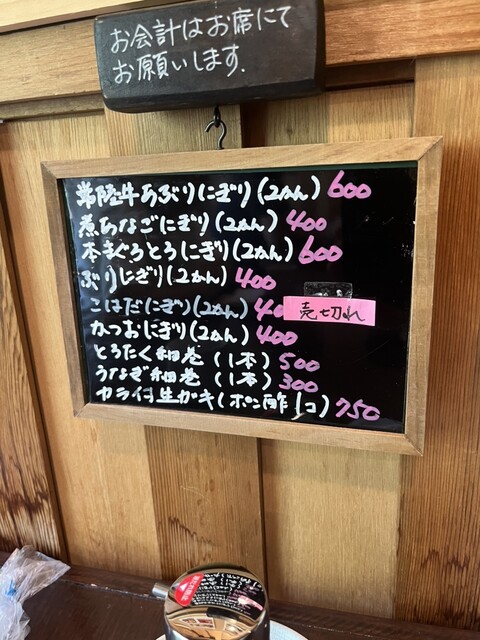 お会計はお席にて
お願いします.
常陸牛あぶりにぎり(2かん) 600
煮あなごにぎり(2かん) 400
本まぐろとろにぎり(2かん) 600
ぶりにぎり(2かん) 400
こはだにぎり(2かん) 40 売切れ
かつおにぎり(2かん) 400
とろたく細巻 (1本) 500
うなぎ細巻 (1本) 300
カラ付生ガキ(ポン酢1コ) 750